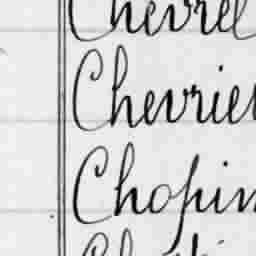 Chevrel
Chevrier
Chopin